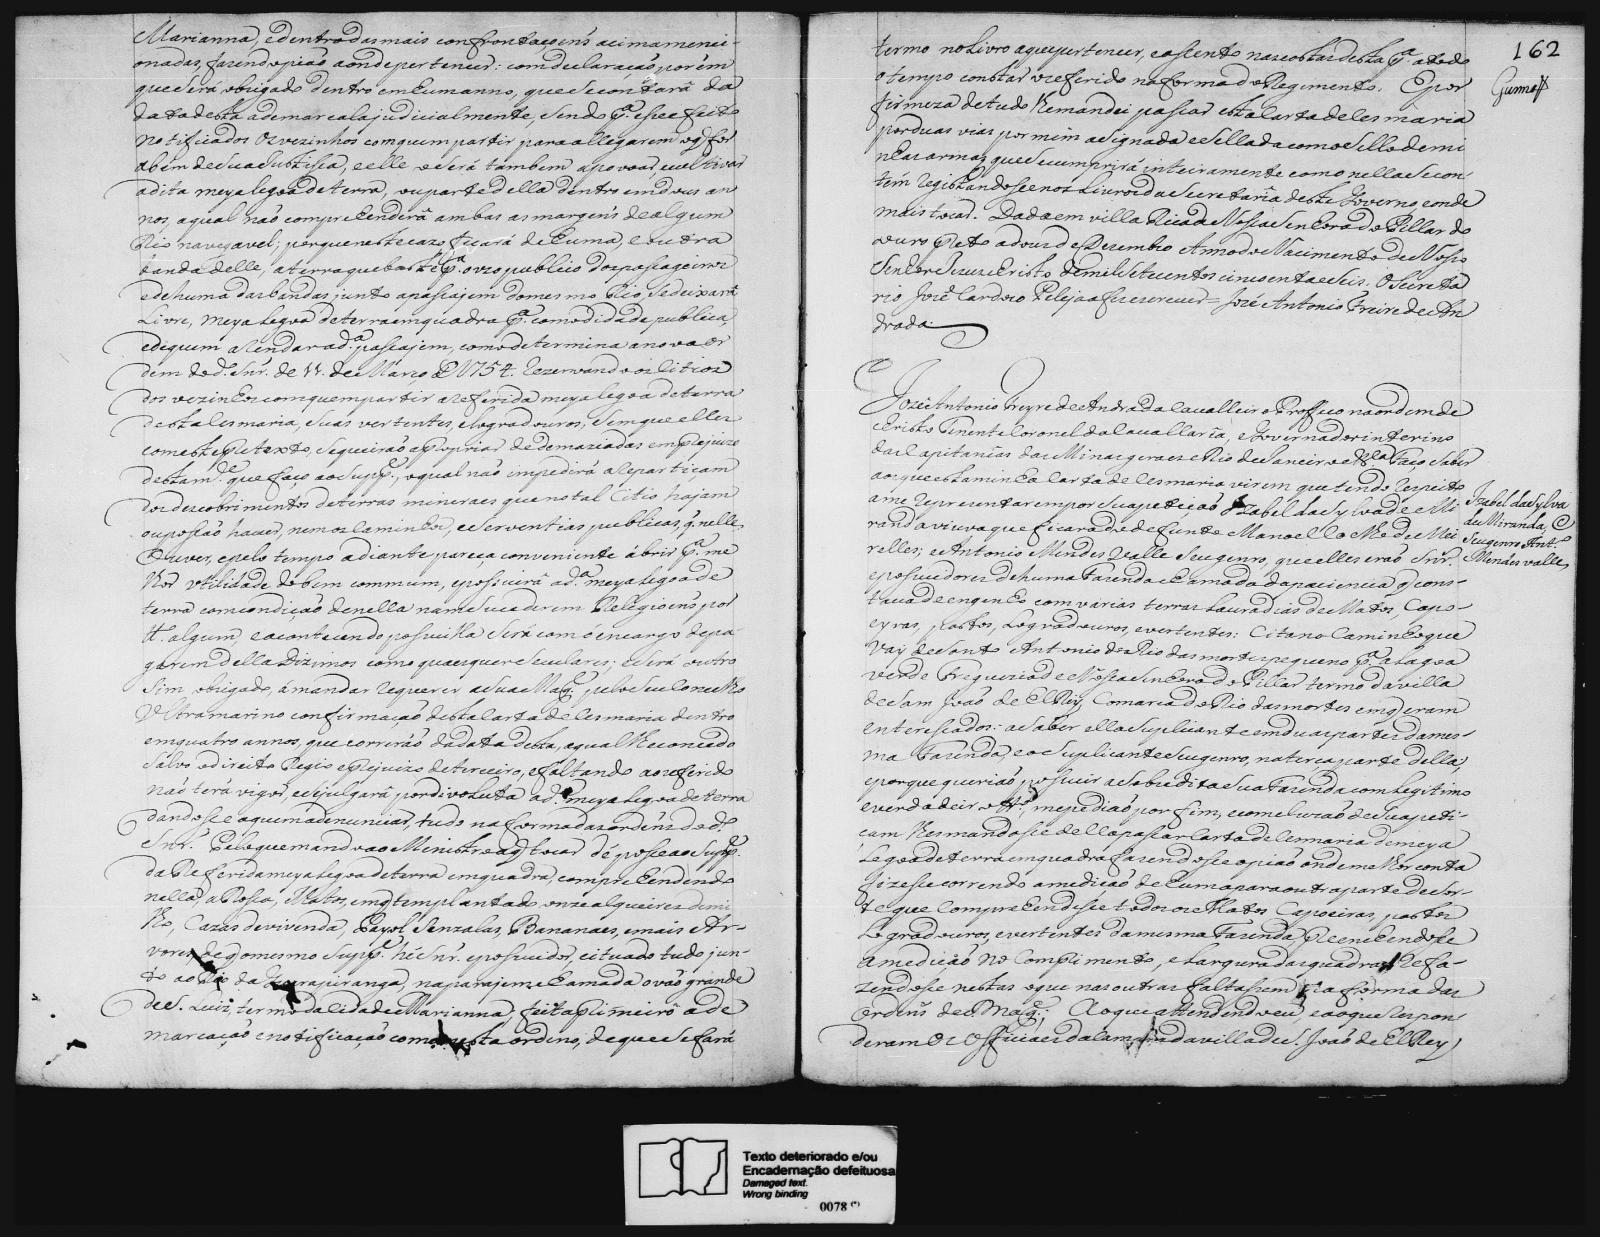 Marianna, e dentro das mais confrontaçoens asima menci-
onadas, fazendo pião aonde pertencer: com declaração, porém
que será obrigado dentro em hum anno, que se contará da
data desta a demarcala judicialmente, sendo p.ª esse feito
notificados os vezinhos com quem partir para allegarem o q̃ for
abem de sua Justissa, e elle o será tambem a povoar, e cultivar
a dita meya legoa de terra, ou parte della dentro em dous an
nos, a qual não comprehenderá ambas as margens de algum
Rio navegavel; porque neste cazo ficará de huma, e outra
banda delle, a terra que baste p.ª o vzo publico dos passageiros
e de huma das bandas junto a passajem do mesmo Rio, se deixará
Livre, meya legoa de terra em quadra p.ª comodidade publica,
e de quem arendar a d.ª passajem, como determina a nova or
dem do d.º Snr. de 11. de Março de 1754. rezervando os sitios
dos vezinhos com quem partir a referida meya legoa de terra
desta Sesmaria, suas vertentes, e logradouros, sem que elles
com este pretexto, se queirão apropriar de demaziadas em prejuizo
desta m.ce que faço ao Supp.e, o qual não impedirá a repartiçam
dos descobrimentos de terras mineraes que no tal Citio hajam
ou possão haver, nem os caminhos, e serventias publicas, q̃ nelle
ouver, e pelo tempo adiante pareça conveniente abrir p.ª me
lhor vtilidade do bem commum, e possuirá a d.ª meya legoa de
terra com condição de nella não sucederem Religioens, por
tt.º algum e acontecendo possuilla será com o encargo de pa-
garem della Dizimos como quaesquer Seculares; e será outro
sim obrigado, a mandar requerer a Sua Mag.e pelo seu Concelho
Vltramarino confirmação desta Carta de Sesmaria dentro
em quatro annos, que correrão da data desta, a qual lhe concedo
salvo o direito Regio e prejuizo de terceiro, e faltando ao referido
não terá vigor, e se julgará por divoluta a d.ª meya legoa de terra
dandose a quem a denunciar, tudo na forma das ordens do d.º
Snr. Pelo que mando ao Ministro a q̃ tocar dé posse ao Supp.e
da Referida meya legoa de terra em quadra, comprehendendo
nella, a Rossa, Matos, em q̃ tem plantado onze alqueires de mi
lho, Cazas de vivenda, Payol Senzalas, Bananaes, e mais Ar-
vores, de q̃ o mesmo Supp.e hé Snr. e possuidor, cituado tudo jun-
to ao Rio da Guarapiranga, na parajem chamada o vão grande
de S. Luis, termo da Cidade Marianna, feita primeiro a de
marcação e notificação como nesta ordeno, de que se fará
162
Gusmão
termo no Livro a que pertencer, e assento nas costas desta p.ª a todo
o tempo constar o referido na forma do Regimento. E por
firmeza de tudo lhe mandei passar esta Carta de Sesmaria
por duas vias por mim asignada e Sellada com o sello de mi
nhas armas, que se cumprirá inteiramente como nella se con-
tem registandose nos Livros da Secretaria deste Governo, e onde
mais tocar. Dada em villa Rica de Nossa Senhora do Pillar do
ouro Preto a dous de Dezembro Anno do Nacimento de Nosso
Senhor Jezus Christo de mil Setecentos cincoenta e seis. O Secreta
rio Jozé Cardozo Peleja a fis escrever = Jozé Antonio Freire de An
drada
Jozé Antonio Freyre de Andrada Cavalleiro Proffeço na ordem de
Christo Tenente Coronel da Cavallaria, e Governador interino
das Capitanias das Minas geraes e Rio de Janeiro &.ª Faço saber
aos que esta minha Carta de Sesmaria virem que tendo respeito
a me representarem por sua petição Izabel da Sylva de Mi-
randa viuva que ficara do defunte Manoel Coelho de Mei
relles; e Antonio Mendes Valle seu genro, que elles erão Snr.es
e possuidores de huma Fazenda chamada da paciencia q̃ cons-
tava de engenho com varias terras lauradias de Matos, Capo-
eyras, pastos, Logradouros, e vertentes: Cita no Caminho que
vay de Santo Antonio do Rio das mortes pequeno p.ª a lagoa
verde Freguezia de N.ª Senhora do Pillar termo da villa
de Sam João de El Rey Comarca do Rio das mortes em q̃ eram
enteressados: a saber ella suplicante em duas partes da mes-
ma Fazenda, e o Suplicante seu genro, na terça parte della,
e porque querião possuir a sobredita sua Fazenda com legitimo
e verdadeiro tt.º me pedião por fim, e concluzão de sua peti-
çam lhes mandasse della passar Carta de Sesmaria de meya
Legoa de terra em quadra fazendose o pião onde melhor conta
fizesse correndo a medição de huma para outra parte de sor-
te que comprehendesse todos os Matos Capoeiras, pastos
Logradouros, e vertentes da mesma Fazenda, prehenchendose
a medição no Complimento, e largura das quadras Refa-
zendose nestas o que nas outras faltassem na forma das
ordens de S. Mag.e; Ao que attendendo eu, e ao que respon-
deram os officiaes da Camara da villa de S. João de El Rey
Izabel da Sylva
de Miranda, e
seu genro Ant.º
Mendes valle
Texto deteriorado e/ou
Encadernação defeituosa
Damaged text.
Wrong binding
0078 (*)